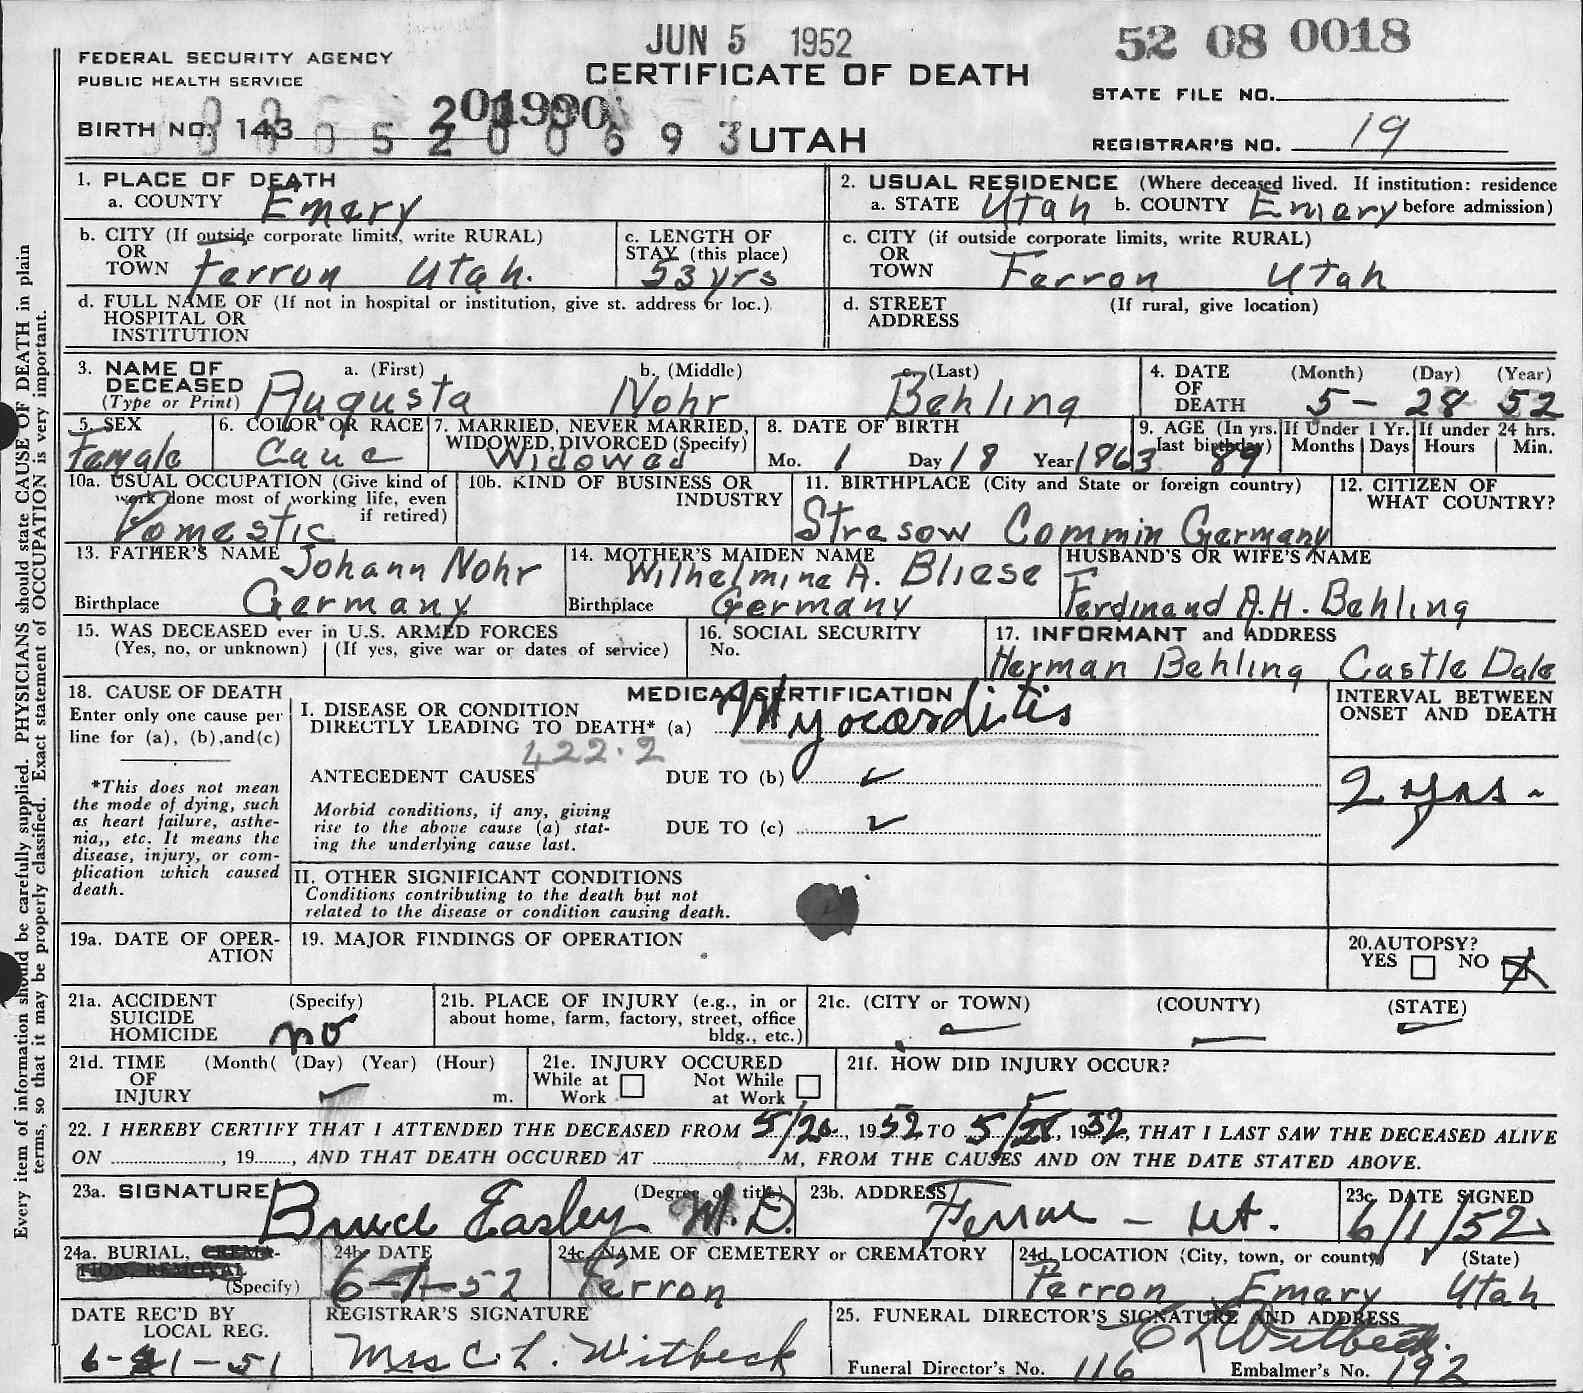 JUN 5 1952
52 08 0018
FEDERAL SECURITY AGENCY
PUBLIC HEALTH SERVICE
CERTIFICATE OF DEATH
STATE FILE NO.
BIRTH NO. 143
UTAH
REGISTRAR'S NO. 19
1. PLACE OF DEATH
a. COUNTY Emery
2. USUAL RESIDENCE (Where deceased lived. If institution: residence before admission)
a. STATE Utah b. COUNTY Emery
b. CITY (If outside corporate limits, write RURAL)
OR
TOWN Ferron Utah.
c. LENGTH OF
STAY (this place)
53 yrs
c. CITY (if outside corporate limits, write RURAL)
OR
TOWN Ferron Utah
d. FULL NAME OF (If not in hospital or institution, give st. address or loc.)
HOSPITAL OR
INSTITUTION
d. STREET (If rural, give location)
ADDRESS
3. NAME OF
DECEASED
(Type or Print)
a. (First) b. (Middle) c. (Last)
Augusta Nohr Behling
4. DATE
OF
DEATH
(Month) (Day) (Year)
5 - 28 52
5. SEX
Female
6. COLOR OR RACE
Cauc
7. MARRIED, NEVER MARRIED,
WIDOWED, DIVORCED (Specify)
Widowed
8. DATE OF BIRTH
Mo. 1 Day 18 Year 1863
9. AGE (In yrs.
last birthday)
89
If Under 1 Yr.
Months Days
If under 24 hrs.
Hours Min.
10a. USUAL OCCUPATION (Give kind of
work done most of working life, even
if retired)
Domestic
10b. KIND OF BUSINESS OR
INDUSTRY
11. BIRTHPLACE (City and State or foreign country)
Stresow Commin Germany
12. CITIZEN OF
WHAT COUNTRY?
13. FATHER'S NAME Johann Nohr
Birthplace Germany
14. MOTHER'S MAIDEN NAME
Wilhelmine A. Bliese
Birthplace Germany
HUSBAND'S OR WIFE'S NAME
Ferdinand A.H. Behling
15. WAS DECEASED ever in U.S. ARMED FORCES
(Yes, no, or unknown) (If yes, give war or dates of service)
16. SOCIAL SECURITY
No.
17. INFORMANT and ADDRESS
Herman Behling Castle Dale
18. CAUSE OF DEATH
Enter only one cause per
line for (a), (b), and (c)
*This does not mean
the mode of dying, such
as heart failure, asthe-
nia,, etc. It means the
disease, injury, or com-
plication which caused
death.
MEDICAL CERTIFICATION
I. DISEASE OR CONDITION
DIRECTLY LEADING TO DEATH* (a) Myocarditis
422.2
ANTECEDENT CAUSES DUE TO (b)
Morbid conditions, if any, giving
rise to the above cause (a) stat-
ing the underlying cause last.
DUE TO (c)
INTERVAL BETWEEN
ONSET AND DEATH
2 yrs -
II. OTHER SIGNIFICANT CONDITIONS
Conditions contributing to the death but not
related to the disease or condition causing death.
19a. DATE OF OPER-
ATION
19. MAJOR FINDINGS OF OPERATION
20. AUTOPSY?
YES NO
21a. ACCIDENT (Specify)
SUICIDE
HOMICIDE no
21b. PLACE OF INJURY (e.g., in or
about home, farm, factory, street, office
bldg., etc.)
21c. (CITY or TOWN) (COUNTY) (STATE)
21d. TIME (Month( (Day) (Year) (Hour)
OF
INJURY m.
21e. INJURY OCCURED
While at Work Not While at Work
21f. HOW DID INJURY OCCUR?
22. I HEREBY CERTIFY THAT I ATTENDED THE DECEASED FROM 5/20, 1952 TO 5/28, 1952, THAT I LAST SAW THE DECEASED ALIVE
ON , 19 , AND THAT DEATH OCCURED AT M, FROM THE CAUSES AND ON THE DATE STATED ABOVE.
23a. SIGNATURE (Degree or title)
Bruce Easley M.D.
23b. ADDRESS
Ferron - Ut.
23c. DATE SIGNED
6/1/52
24a. BURIAL, CREMA-
TION, REMOVAL
(Specify)
24b. DATE
6-1-52
24c. NAME OF CEMETERY or CREMATORY
Ferron
24d. LOCATION (City, town, or county) (State)
Ferron Emery Utah
DATE REC'D BY
LOCAL REG.
REGISTRAR'S SIGNATURE
Mrs C. L. Witbeck
25. FUNERAL DIRECTOR'S SIGNATURE AND ADDRESS
C L Witbeck.
Funeral Director's No. 116 Embalmer's No. 192
Every item of information should be carefully supplied. PHYSICIANS should state CAUSE OF DEATH in plain
terms, so that it may be properly classified. Exact statement of OCCUPATION is very important.